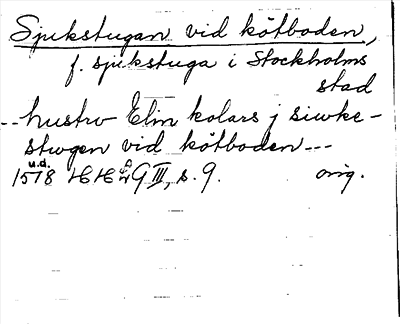 Sjukstugan vid kötboden,
f. sjukstuga i Stockholms
stad
-- hustrv Elin kolars j siwke-
stwgen vid kötboden ---
u.d.
1578 HH GIII, s. 9. orig.